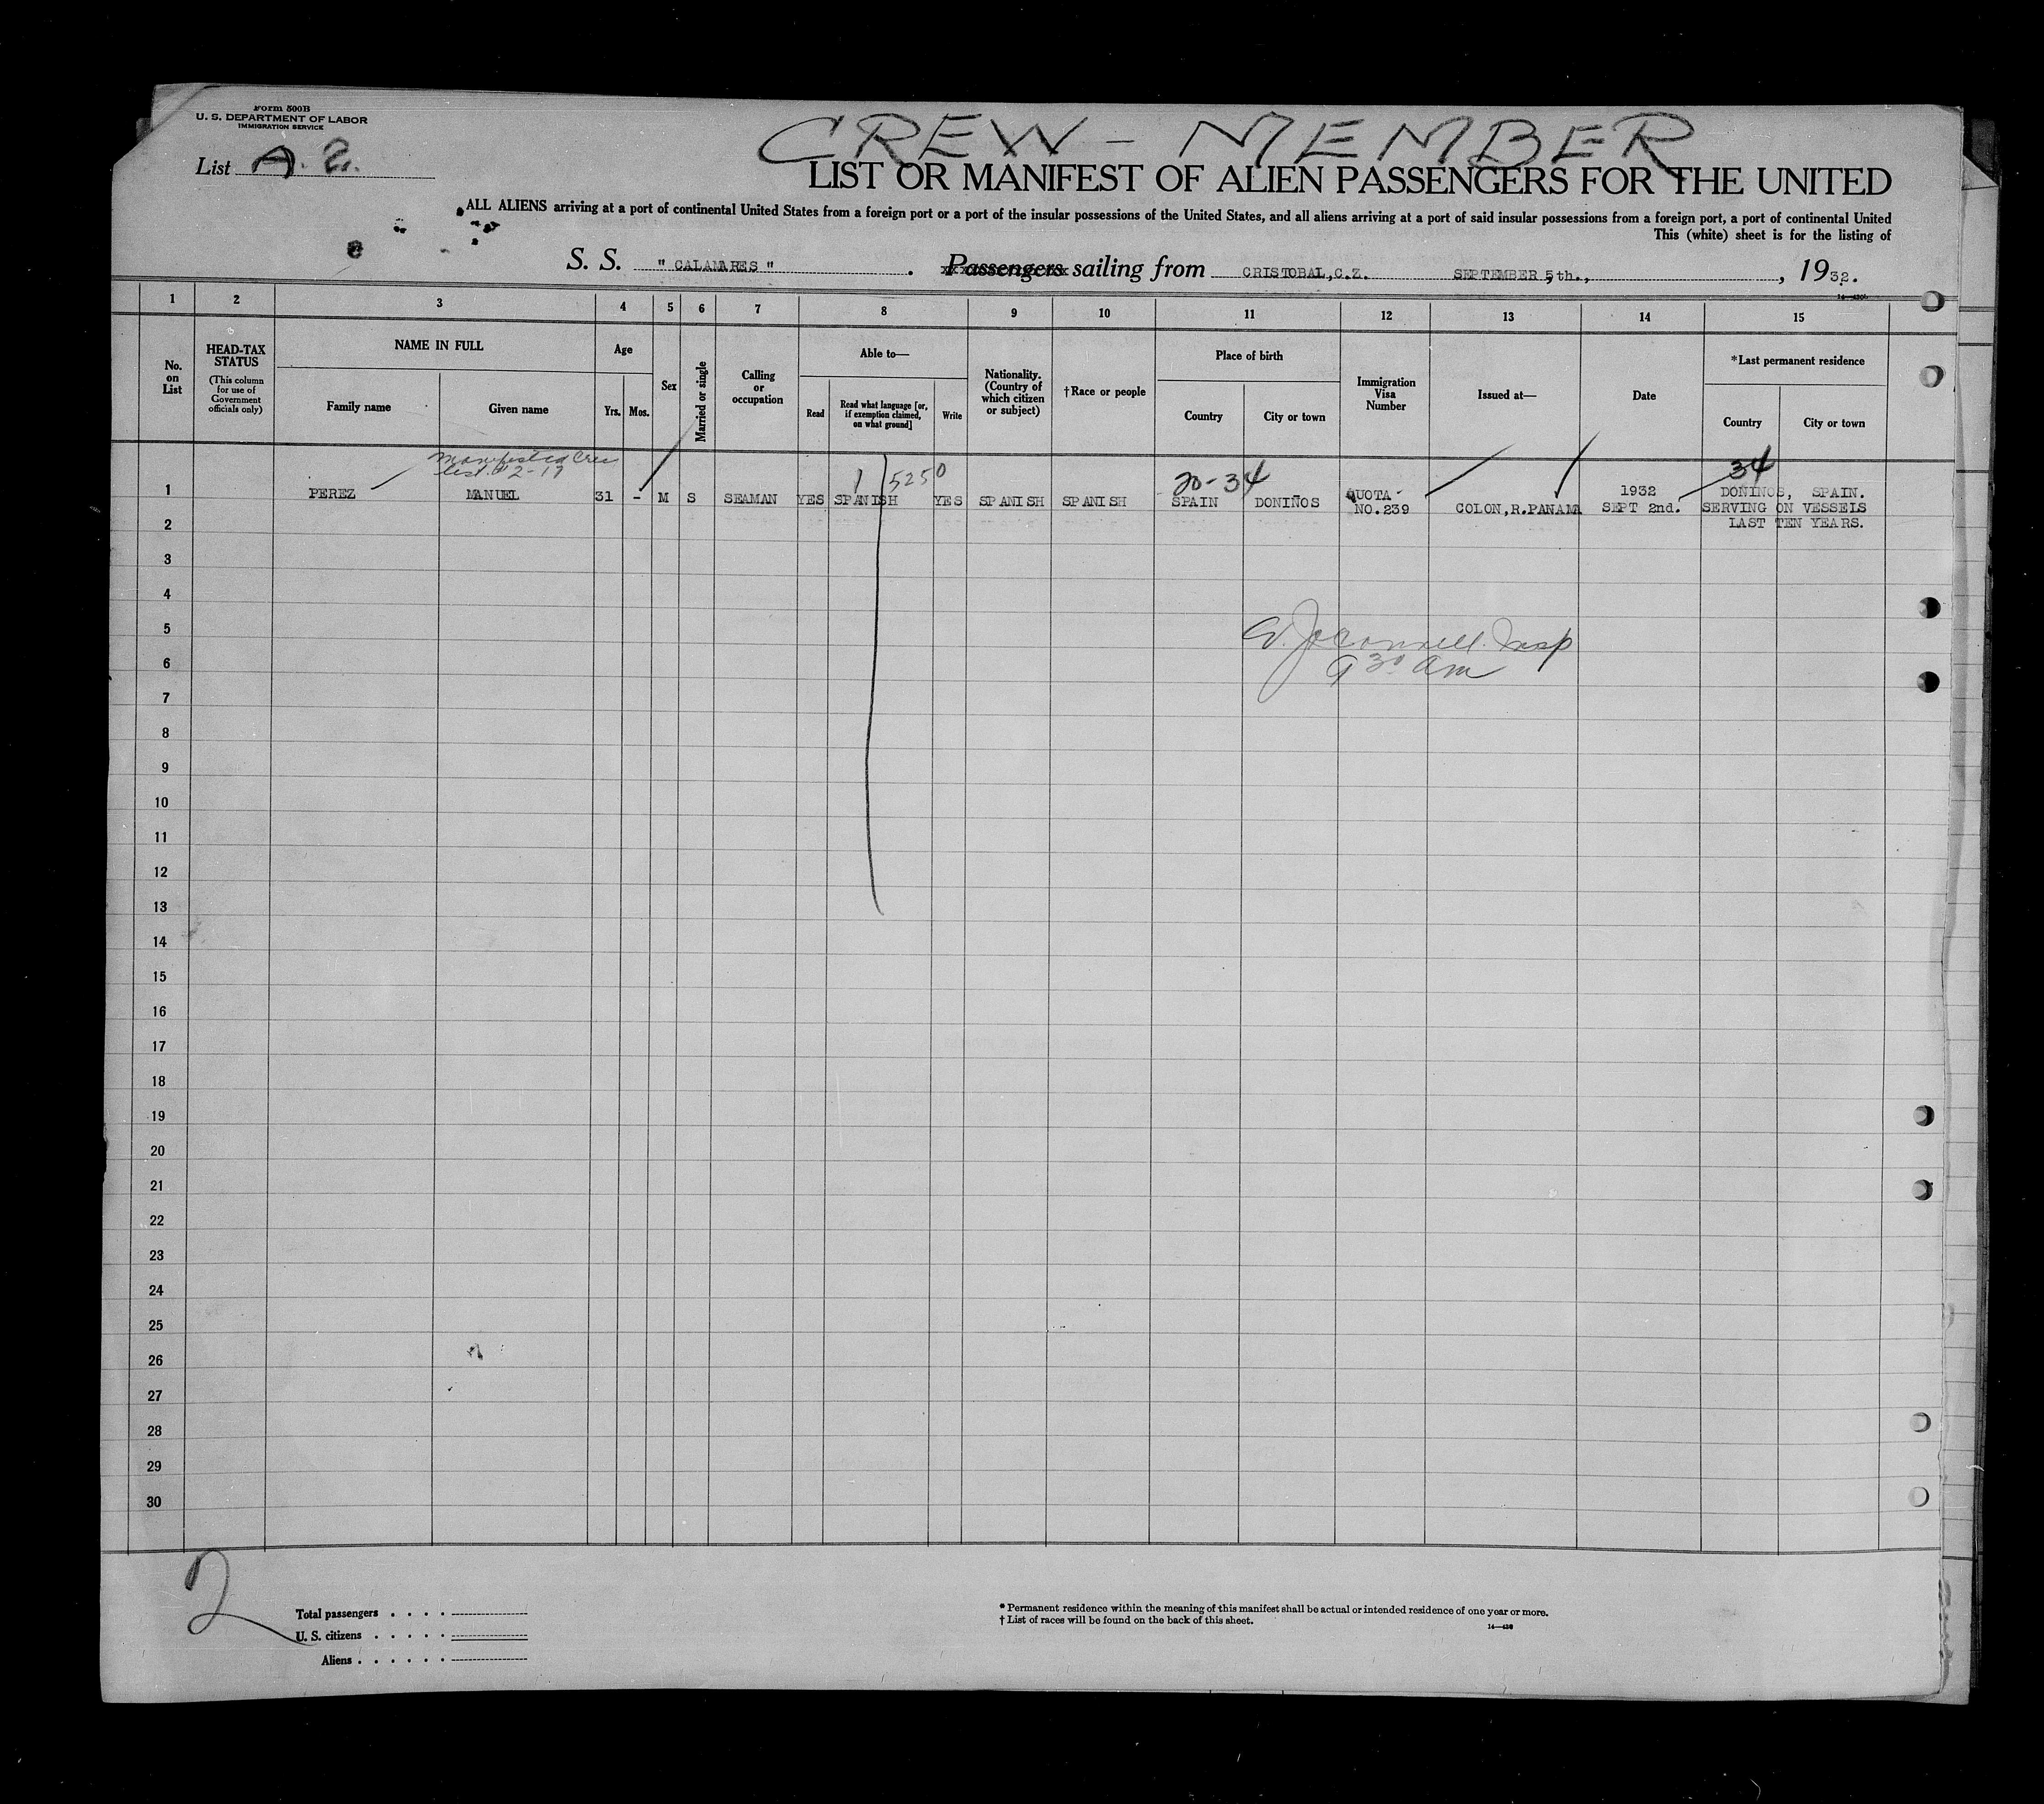 Form 500B
U. S. DEPARTMENT OF LABOR
IMMIGRATION SERVICE
List A. 2.
CREW - MEMBER
LIST OR MANIFEST OF ALIEN PASSENGERS FOR THE UNITED
ALL ALIENS arriving at a port of continental United States from a foreign port or a port of the insular possessions of the United States, and all aliens arriving at a port of said insular possessions from a foreign port, a port of continental United
This (white) sheet is for the listing of
S. S. " CALAMARES " . Passengers sailing from CRISTOBAL,C.Z. SEPTEMBER 5th., , 1932.
14—430
1 2 3 4 5 6 7 8 9 10 11 12 13 14 15
No.
on
List
HEAD-TAX
STATUS
(This column
for use of
Government
officials only)
NAME IN FULL
Family name
Given name
Age
Yrs.
Mos.
Sex
Married or single
Calling
or
occupation
Able to—
Read
Read what language [or,
if exemption claimed,
on what ground]
Write
Nationality.
(Country of
which citizen
or subject)
†Race or people
Place of birth
Country
City or town
Immigration
Visa
Number
Issued at—
Date
*Last permanent residence
Country
City or town
Manifested Crew
list. # 2-17
5250
20-34
34
1 PEREZ MANUEL 31 - M S SEAMAN YES SPANISH YES SPANISH SPANISH SPAIN DONIÑOS QUOTA
NO.239 COLON,R.PANAMA 1932
SEPT 2nd. DONINOS, SPAIN.
SERVING ON VESSELS
LAST TEN YEARS.
2
3
4
5
Insp
6
9 30 am
7
8
9
10
11
12
13
14
15
16
17
18
19
20
21
22
23
24
25
26
27
28
29
30
2
Total passengers . . . .
U. S. citizens . . . . .
Aliens . . . . . .
* Permanent residence within the meaning of this manifest shall be actual or intended residence of one year or more.
† List of races will be found on the back of this sheet.
14—430